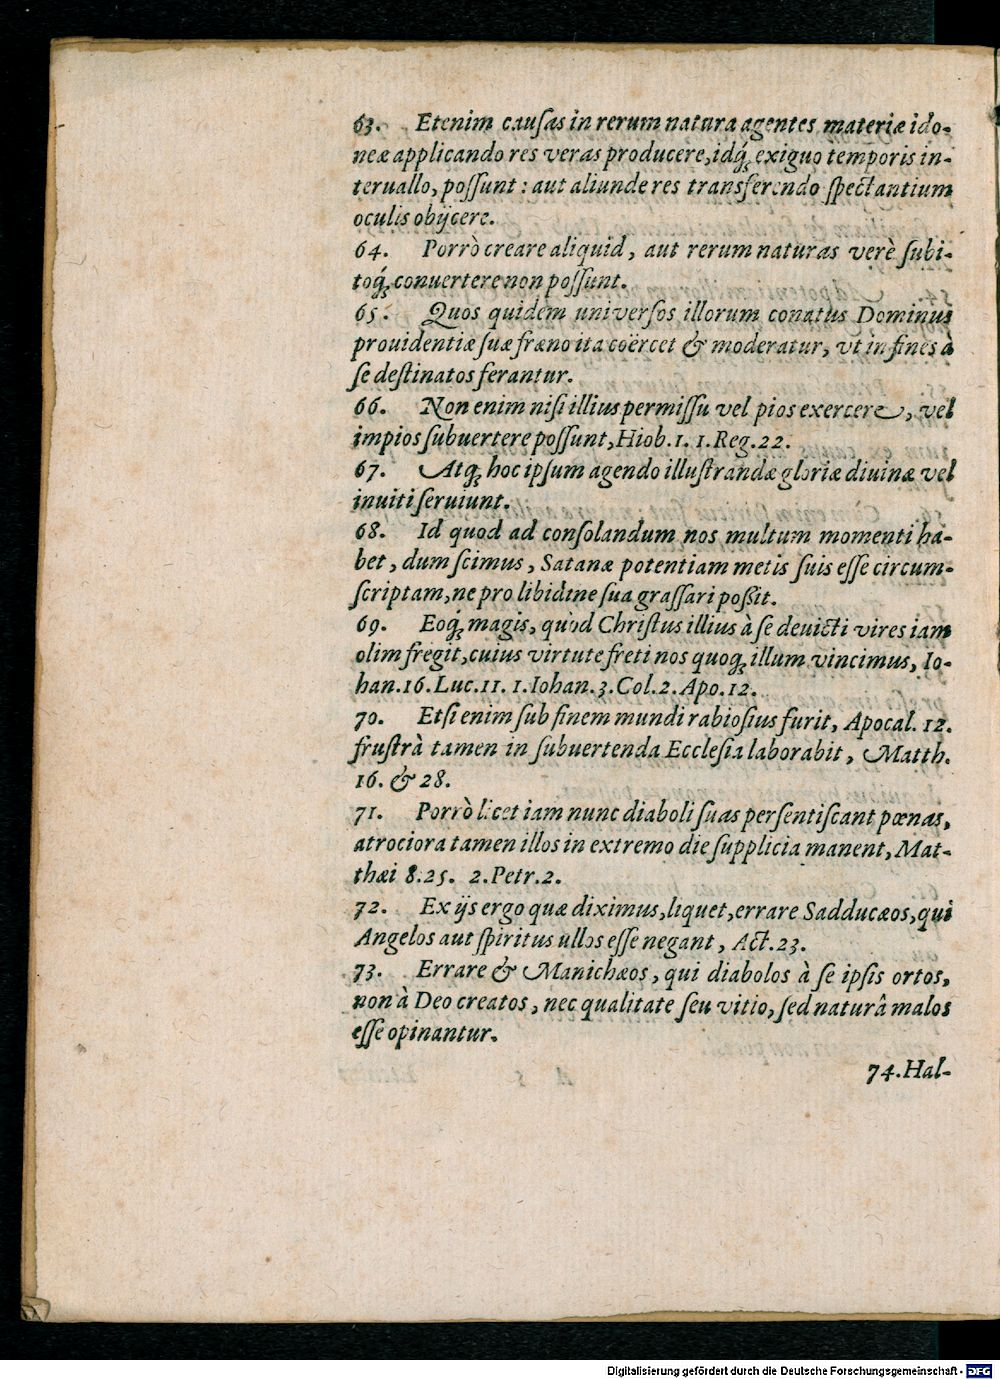 63. Etenim cauſas in rerum natura agentes materiæ ido-
neæ applicando res veras producere, idq́; exiguo temporis in-
teruallo, poſſunt: aut aliunde res transferendo ſpectantium
oculis obijcere.
64. Porrò creare aliquid, aut rerum naturas verè ſubi-
toq́; conuertere non poſſunt.
65. Quos quidem univerſos illorum conatus Dominus
prouidentiæ ſuæ fræno ita coërcet & moderatur, vt in fines à
ſe deſtinatos ferantur.
66. Non enim niſi illius permiſſu vel pios exercere, vel
impios ſubuertere poſſunt, Hiob. 1. 1. Reg. 22.
67. Atq; hoc ipſum agendo illuſtrandæ gloriæ divinæ vel
inuiti ſeruiunt.
68. Id quod ad conſolandum nos multum momenti ha-
bet, dum ſcimus, Satanæ potentiam metis ſuis eſſe circum-
ſcriptam, ne pro libidine ſua graſſari poſſit.
69. Eoq́; magis, quòd Chriſtus illius à ſe deuicti vires iam
olim fregit, cuius virtute freti nos quoq; illum vincimus, Io-
han. 16. Luc. 11. 1. Iohan. 3. Col. 2. Apo. 12.
70. Etſi enim ſub finem mundi rabioſius furit, Apocal. 12.
fruſtrà tamen in ſubuertenda Eccleſia laborabit, Matth.
16. & 28.
71. Porrò licet iam nunc diaboli ſuas perſentiſcant pœnas,
atrociora tamen illos in extremo die ſupplicia manent, Mat-
thæi 8. 25. 2. Petr. 2.
72. Ex ijs ergo quæ diximus, liquet, errare Sadducæos, qui
Angelos aut ſpiritus ullos eſſe negant, Act. 23.
73. Errare & Manichæos, qui diabolos à ſe ipſis ortos,
non à Deo creatos, nec qualitate ſeu vitio, ſed naturâ malos
eſſe opinantur.
74. Hal-
Digitalisierung gefördert durch die Deutsche Forschungsgemeinschaft - DFG